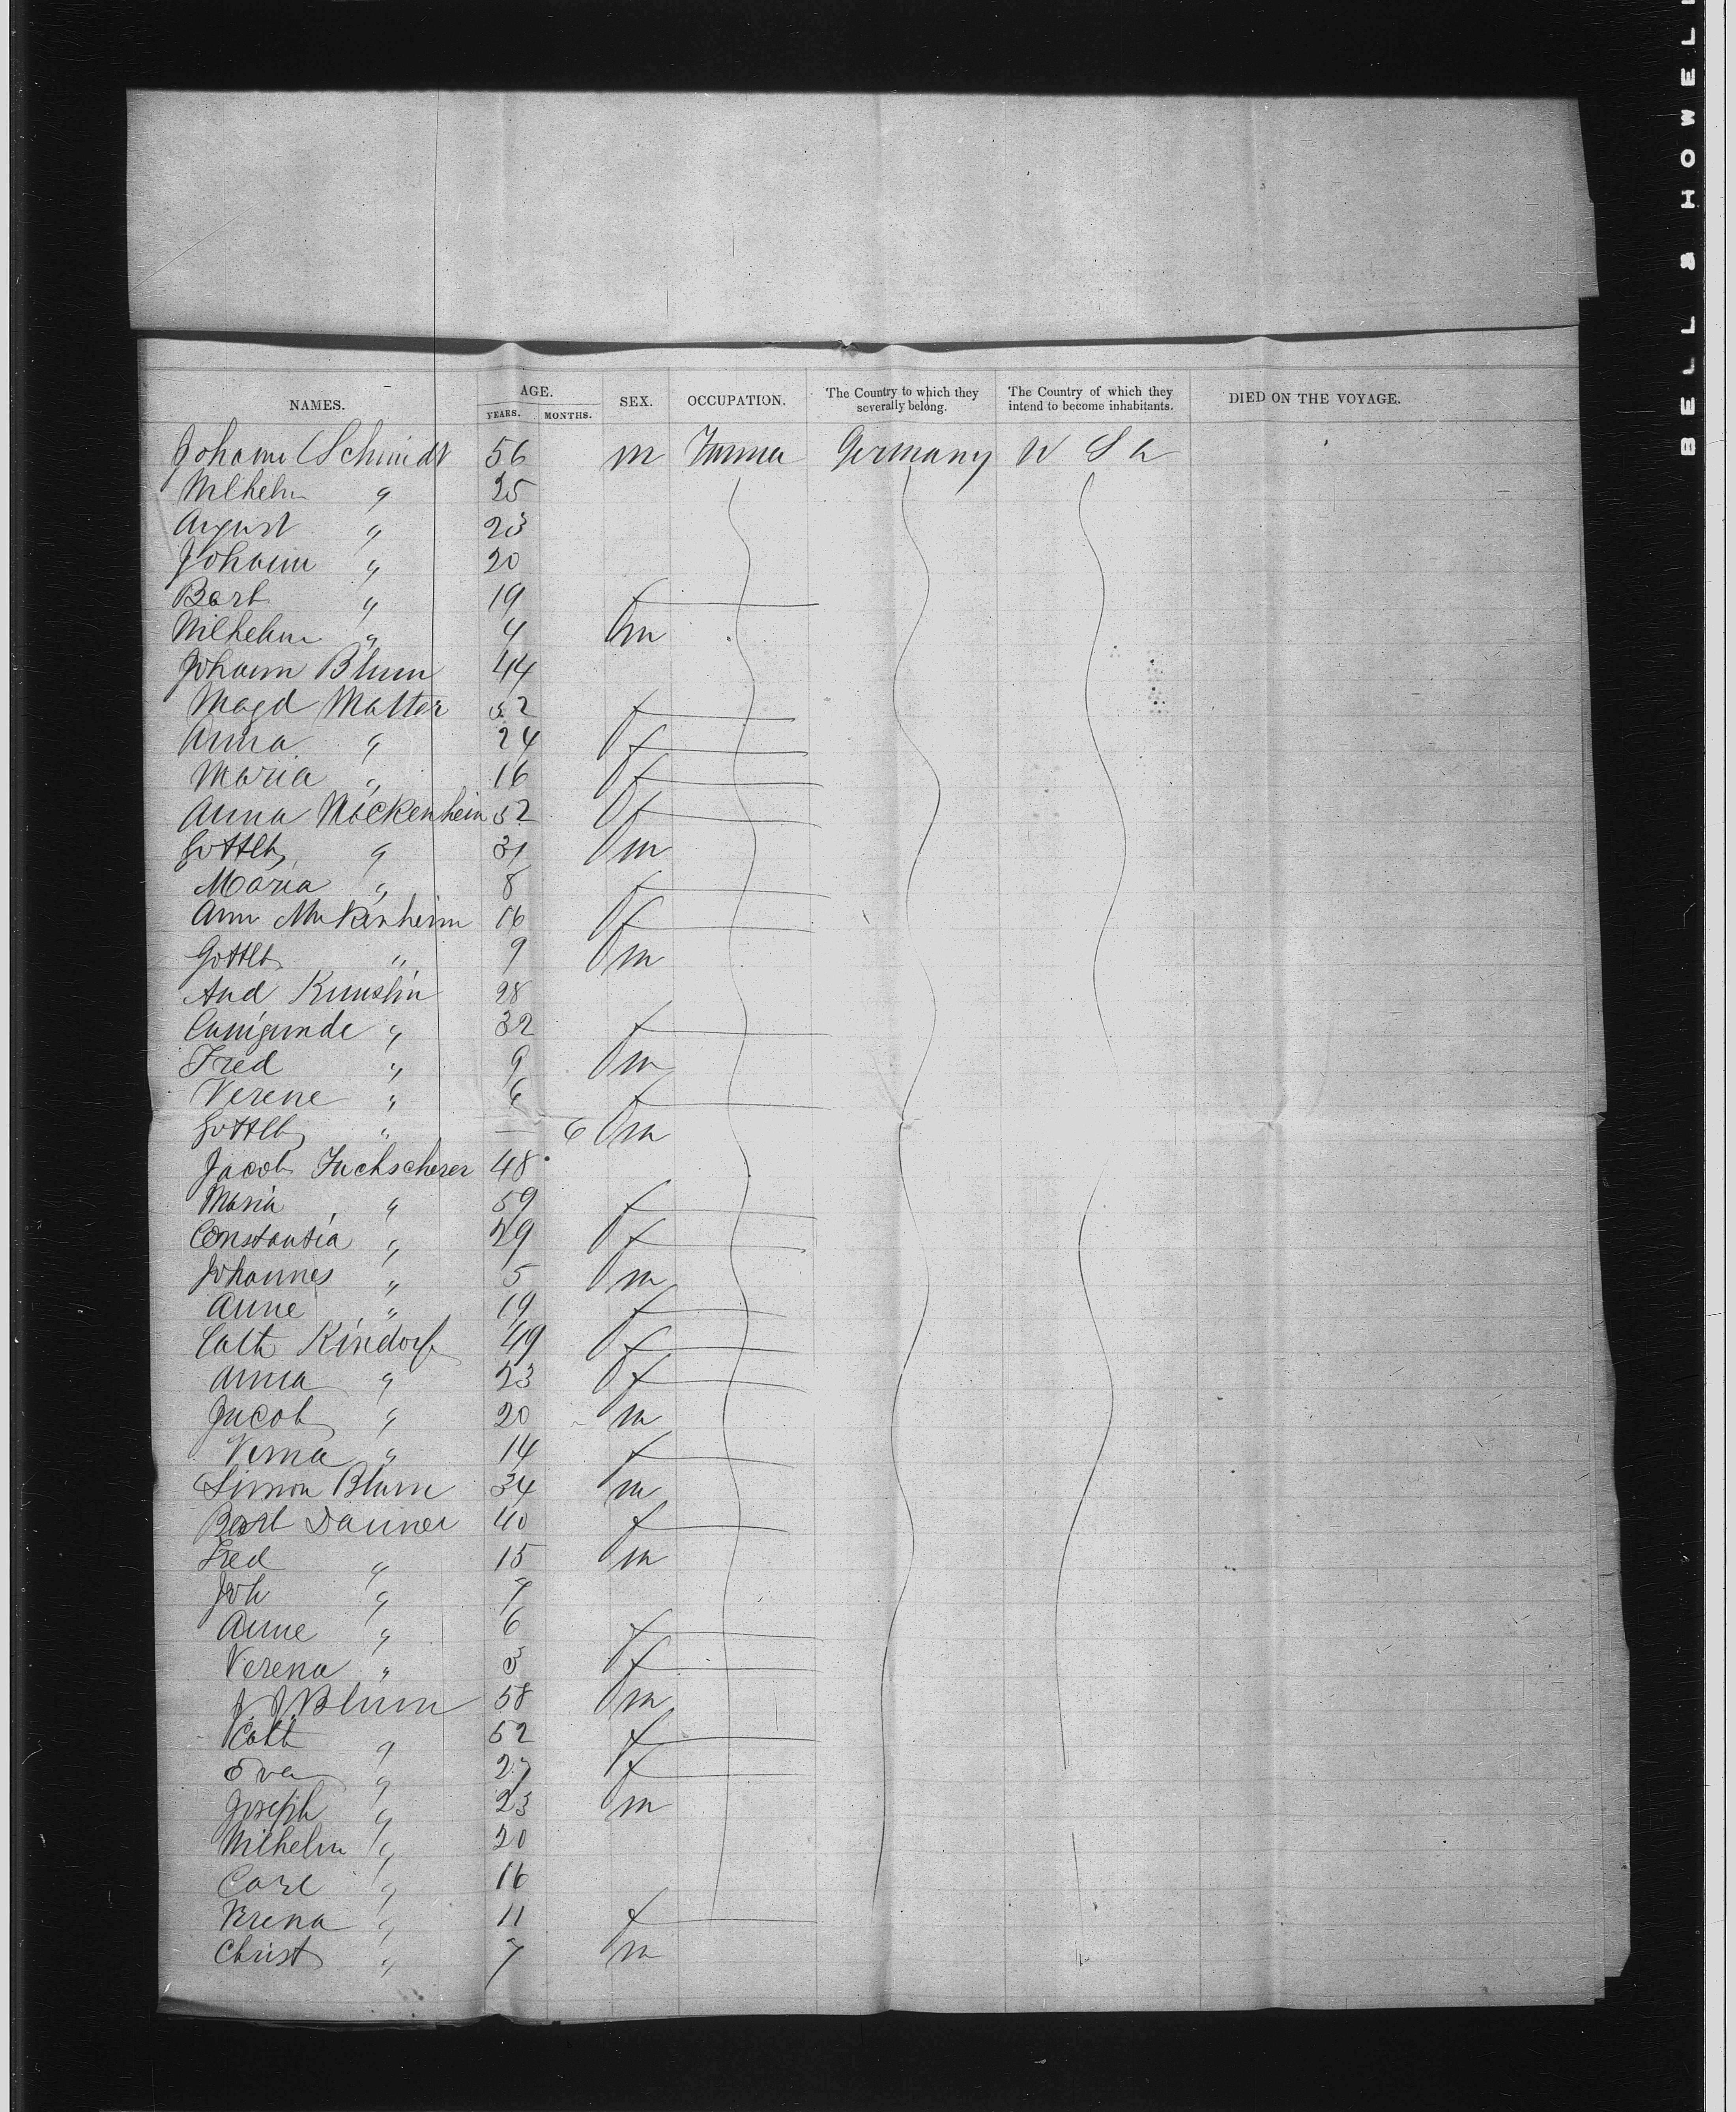 NAMES. AGE. YEARS. MONTHS. SEX. OCCUPATION. The Country to which they severally belong. The Country of which they intend to become inhabitants. DIED ON THE VOYAGE.
Johann Schmidt 56 m Farmer Germany U S A
Wilhelm " 25
August " 23
Johann " 20
Barb " 19 f
Wilhelm " 4 m
Johann Blum 44
Magd Matter 52 f
Anna " 24 f
Maria " 16 f
Anna Mackenhein 52 f
Gottlb " 31 m
Maria " 8 f
Ann 16 f
Gottlb " 9 m
And 28
Cunigunde " 32 f
Fred " 9 m
Verene " 6 f
Gottlb " — 6 m
Jacob Fuchscherer 48
Maria " 59 f
Constantia " 29 f
Johannes " 5 m
Anne " 19 f
Cath Kindorf 49 f
Anna " 23 f
Jacob " 20 m
Verna " 14 f
Simon Blum 34 m
Barb Danner 40 f
Fred " 15 m
Joh " 7
Anne " 6 f
Verena " 3 f
J J Blum 58 m
Cath " 52 f
Eva " 27 f
Joseph " 23 m
Wilhelm " 20
Carl " 16
Verena " 11 f
Christ " 7 m
BELL & HOWEL